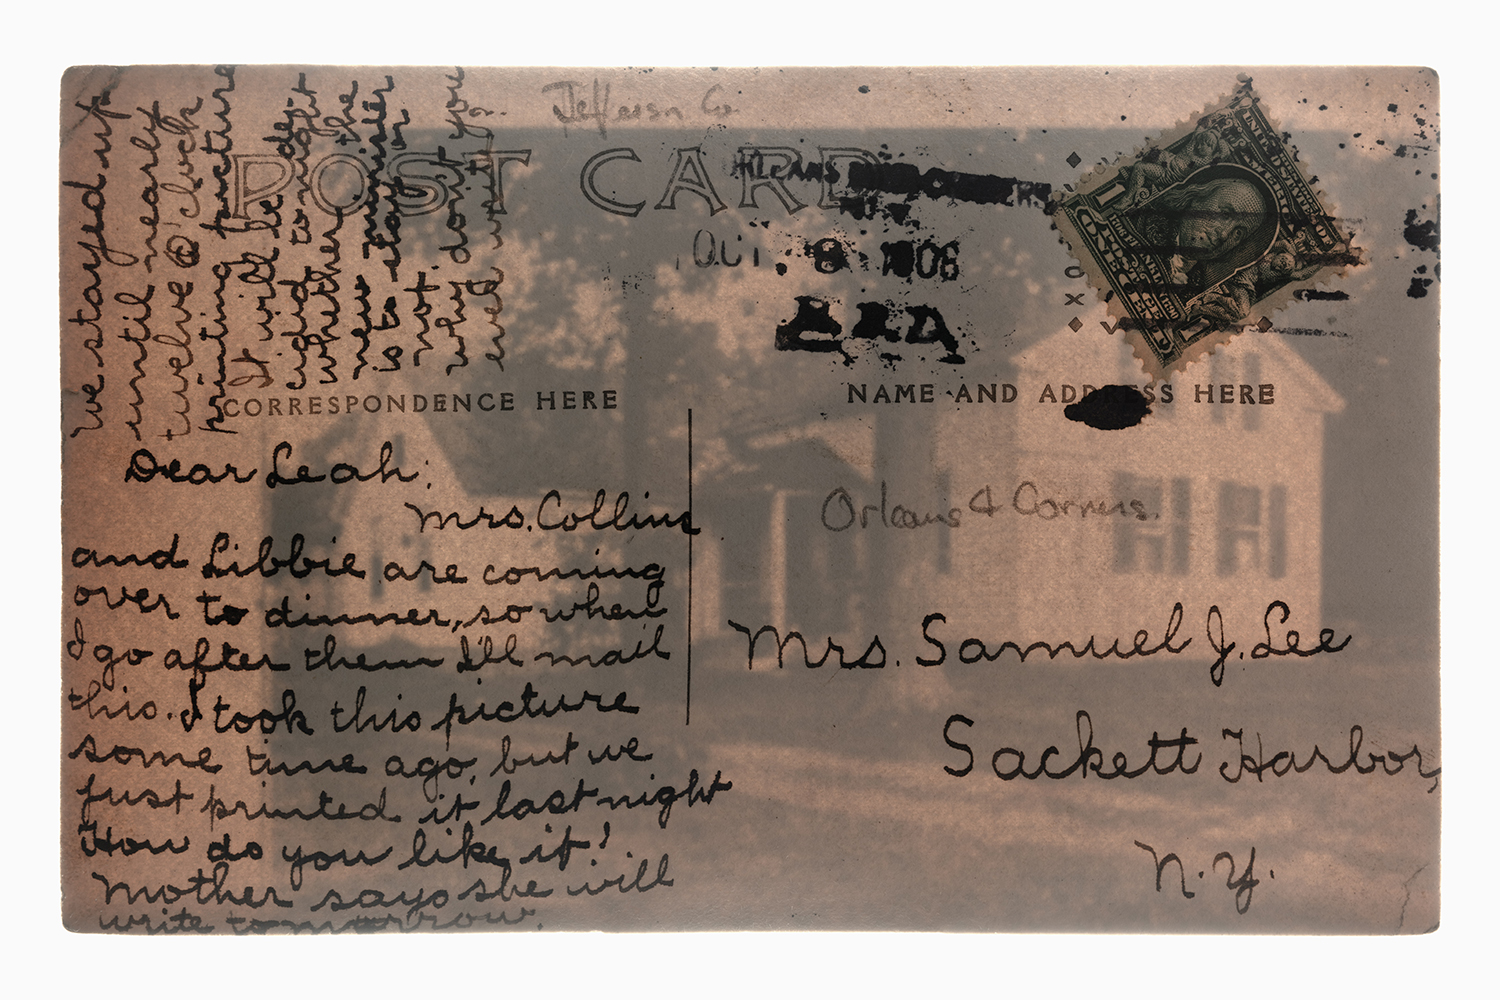 Jefferson Co.
POST CARD
OCT. 8 1906
CORRESPONDENCE HERE
NAME AND ADDRESS HERE
Dear Leah:
Mrs. Collins
and Libbie are coming
over to dinner, so when
I go after them I'll mail
this. I took this picture
some time ago, but we
just printed it last night
How do you like it!
Mother says she will
write tomorrow.
we stayed up
until nearly
twelve o'clock
printing picture
It will be de-
cided to-night
whether the
new minister
is to stay or
not.
why don't you
ever write
Orleans 4 Corners.
Mrs. Samuel J. Lee
Sackett Harbor,
N.Y.